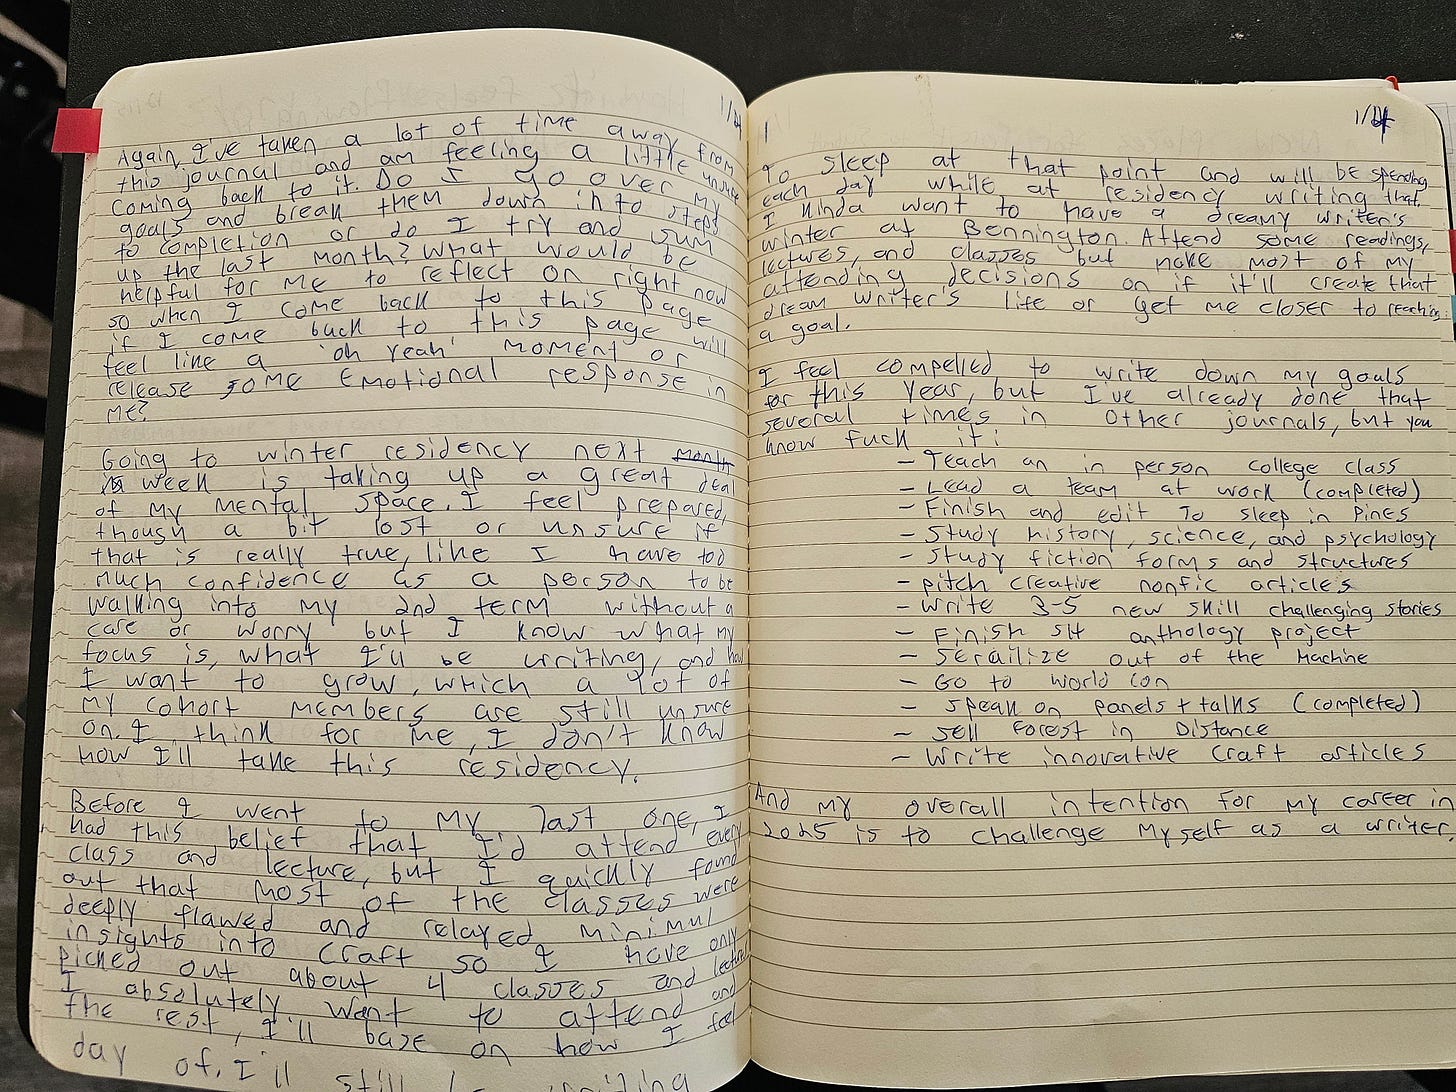 1/4
Again, I've taken a lot of time away from
this journal and am feeling a little unsure
coming back to it. Do I go over my
goals and break them down into steps
to completion or do I try and sum
up the last month? What would be
helpful for me to reflect on right now
so when I come back to this page
if I come back to this page will
feel like a 'oh yeah' moment or
release some emotional response in
me?
Going to winter residency next month
week is taking up a great deal
of my mental space. I feel prepared,
though a bit lost or unsure if
that is really true, like I have too
much confidence as a person to be
walking into my 2nd term without a
care or worry but I know what my
focus is, what I'll be writing, and how
I want to grow, which a lot of
my cohort members are still unsure
on. I think for me, I don't know
how I'll take this residency.
Before I went to my last one, I
had this belief that I'd attend every
class and lecture, but I quickly found
out that most of the classes were
deeply flawed and relayed minimul
insights into craft so I have only
picked out about 4 classes and lectures
I absolutely want to attend and
the rest, I'll base on how I feel
day of. I'll still be writing
1/4
To sleep at that point and will be spending
each day while at residency writing that.
I kinda want to have a dreamy writer's
winter at Bennington. Attend some readings,
lectures, and classes but make most of my
attending decisions on if it'll create that
dream writer's life or get me closer to reaching
a goal.
I feel compelled to write down my goals
for this year, but I've already done that
several times in other journals, but you
know fuck it:
- Teach an in person college class
- Lead a team at work (completed)
- Finish and edit To sleep in Pines
- Study history, science, and psychology
- Study fiction forms and structures
- pitch creative nonfic articles
- Write 3-5 new skill challenging stories
- Finish SLT anthology project
- Serailize out of the Machine
- Go to world con
- Speak on panels + talks (completed)
- Sell Forest in Distance
- Write innovative craft articles
And my overall intention for my career in
2025 is to challenge myself as a writer.